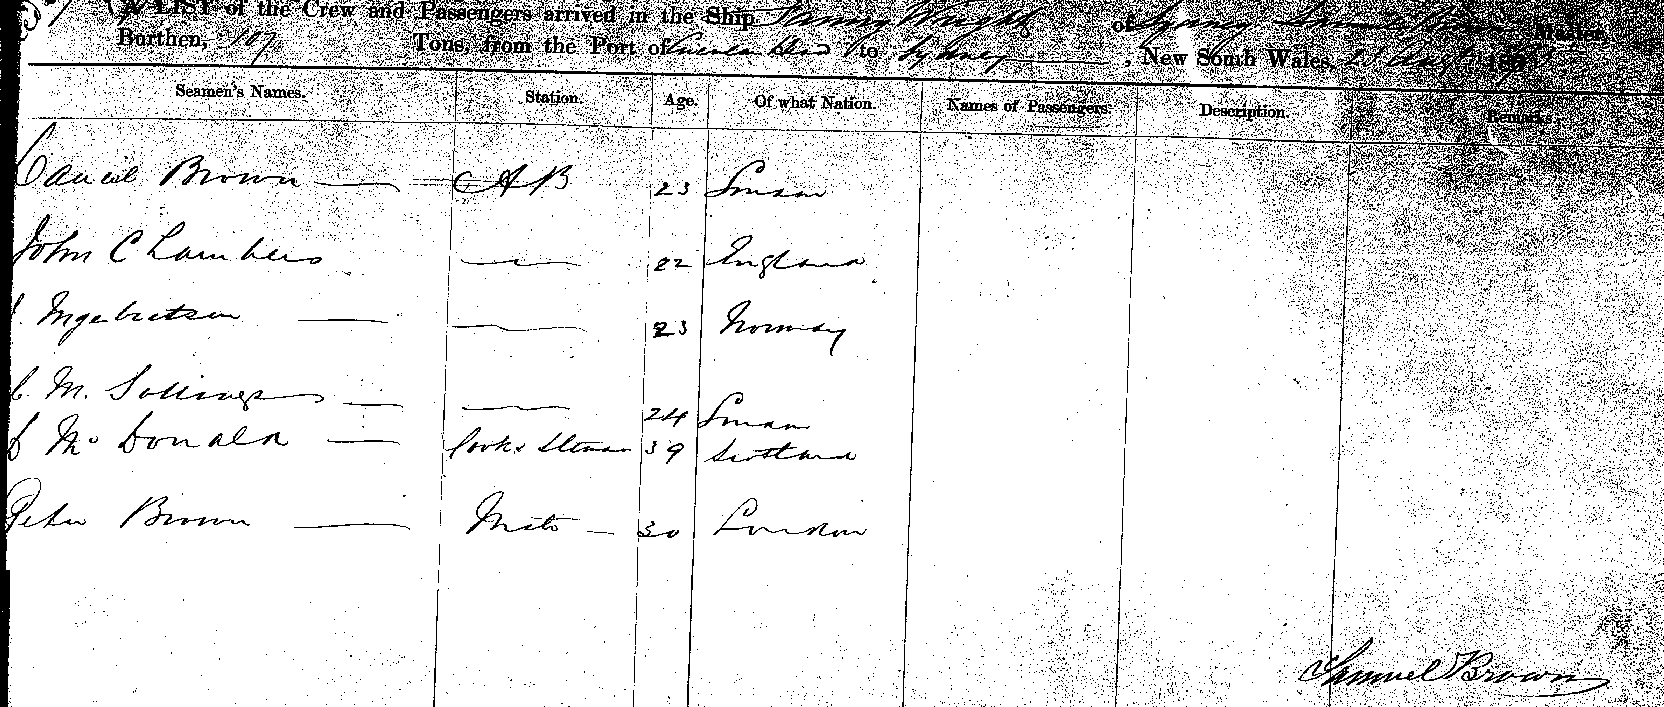 A LIST of the Crew and Passengers arrived in the Ship Fanny Wright of Sydney Samuel Brown Master,
Burthen, 107 Tons, from the Port of to Sydney, New South Wales, 20 Augt 187
Seamen's Names. Station. Age. Of what Nation. Names of Passengers. Description. Remarks.
Daniel Brown A B 23
John Chambers 22 England
Ingebretsen 23 Norway
M. 24
D McDonald Cook & Steward 39 Scotland
Peter Brown Mate 30 London
Samuel Brown